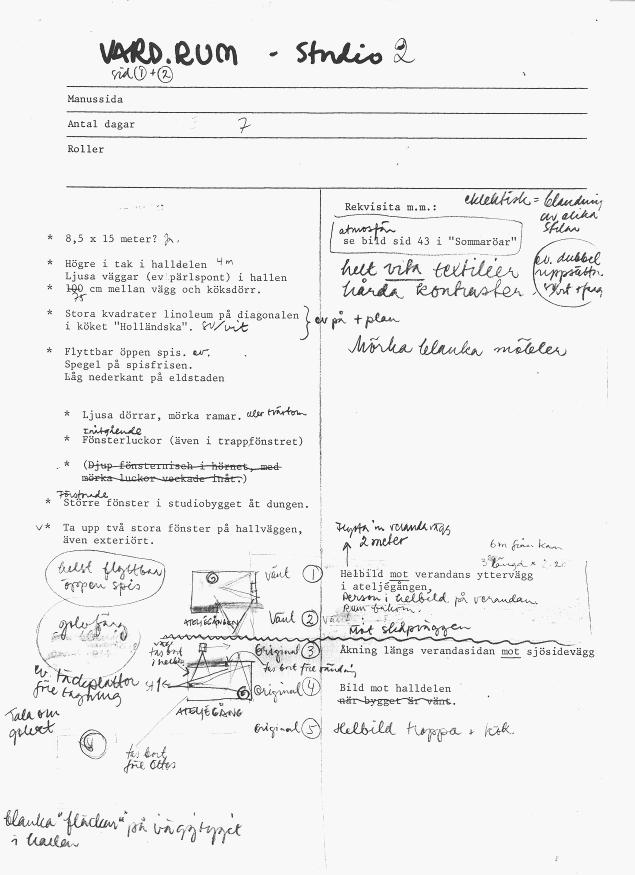 VARD.RUM - Studio 2
sid ① + ②
Manussida
Antal dagar 7
Roller
Rekvisita m.m.:
eklektisk = blandning
av olika
stilar
atmosfär
se bild sid 43 i "Sommaröar"
helt vita textilier
hårda kontraster
ev. dubbel
Mörka blanka möbler
* 8,5 x 15 meter? Ja.
* Högre i tak i halldelen 4m
Ljusa väggar (ev pärlspont) i hallen
* 100 cm mellan vägg och köksdörr.
75
* Stora kvadrater linoleum på diagonalen
i köket "Holländska". sv/vit
ev på + plan
* Flyttbar öppen spis. ev.
Spegel på spisfrisen.
Låg nederkant på eldstaden
* Ljusa dörrar, mörka ramar. eller tvärtom
Inåtgående
* Fönsterluckor (även i trappfönstret)
* (Djup fönsternisch i hörnet, med
mörka luckor veckade inåt.)
Förstorade
* Större fönster i studiobygget åt dungen.
* Ta upp två stora fönster på hallväggen,
även exteriört.
Flytta in verandavägg
2 meter
6m från kam
helst flyttbar
öppen spis
golvfärg
ev. täckplattor
före tagning
Tala om
golvet
vänt ①
Helbild mot verandans yttervägg
i ateljégången,
Person i helbild på verandan
Rum bakom.
ATELJÉGÅNGEN
Vänt ②
mot
Original ③ Åkning längs verandasidan mot sjösidevägg
tas bort
tas bort före vändning
Original ④ Bild mot halldelen
när bygget är vänt.
ATELJÉGÅNG
Original ⑤ Helbild trappa + kök.
tas bort
före
blanka "fläckar" på väggtyget
i hallen